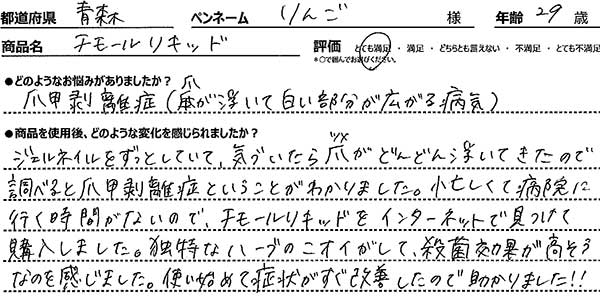 都道府県 青森 ペンネーム りんご 様 年齢 29 歳
商品名 チモールリキッド 評価 とても満足・満足・どちらとも言えない・不満足・とても不満足
*○で囲んでお選びください。
●どのようなお悩みがありましたか？
爪甲剥離症(爪が浮いて白い部分が広がる病気)
●商品を使用後、どのような変化を感じられましたか？
ジェルネイルをずっとしていて、気づいたら爪がどんどん浮いてきたので
調べると爪甲剥離症ということがわかりました。忙しくて病院に
行く時間がないので、チモールリキッドをインターネットで見つけて
購入しました。独特なハーブのニオイがして、殺菌効果が高そう
なのを感じました。使い始めて症状がすぐ改善したので助かりました!!